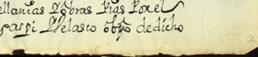 ellanias Y obras Pias Por el
Velasco obpo de dicho